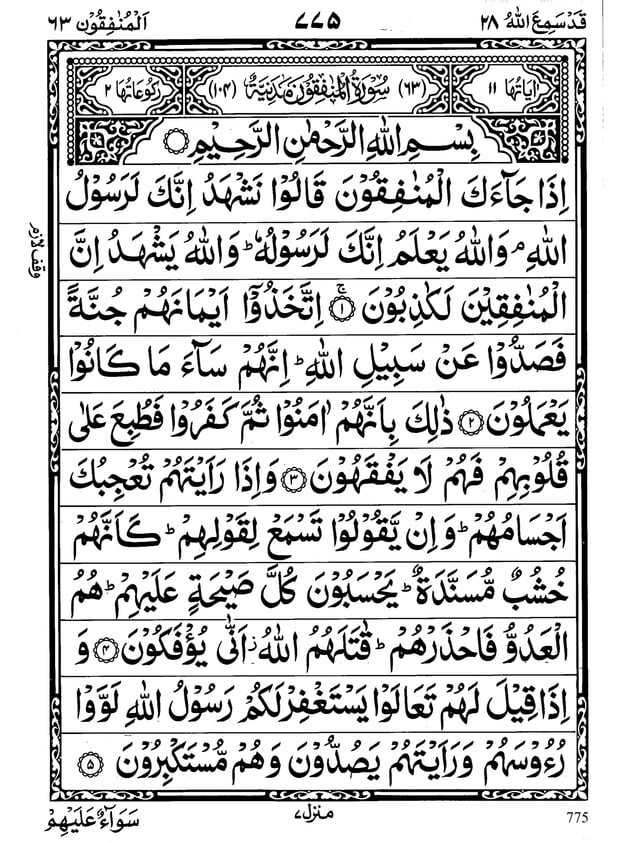 قَدْ سَمِعَ اللّٰهُ ۲۸ ۷۷۵ اَلْمُنٰفِقُوْن ۶۳
اٰيَاتُهَا ۱۱ (۶۳) سُوْرَةُ الْمُنٰفِقُوْنَ مَدَنِيَّةٌ (۱۰۴) رُكُوْعَاتُهَا ۲
بِسْمِ اللّٰهِ الرَّحْمٰنِ الرَّحِيْمِ
اِذَا جَآءَكَ الْمُنٰفِقُوْنَ قَالُوْا نَشْهَدُ اِنَّكَ لَرَسُوْلُ
اللّٰهِ ۘ وَاللّٰهُ يَعْلَمُ اِنَّكَ لَرَسُوْلُهٗ ؕ وَاللّٰهُ يَشْهَدُ اِنَّ
وقف لازم
الْمُنٰفِقِيْنَ لَكٰذِبُوْنَ ۚ ۱ اِتَّخَذُوْٓا اَيْمَانَهُمْ جُنَّةً
فَصَدُّوْا عَنْ سَبِيْلِ اللّٰهِ ؕ اِنَّهُمْ سَآءَ مَا كَانُوْا
يَعْمَلُوْنَ ۲ ذٰلِكَ بِاَنَّهُمْ اٰمَنُوْا ثُمَّ كَفَرُوْا فَطُبِعَ عَلٰى
قُلُوْبِهِمْ فَهُمْ لَا يَفْقَهُوْنَ ۳ وَاِذَا رَاَيْتَهُمْ تُعْجِبُكَ
اَجْسَامُهُمْ ؕ وَاِنْ يَّقُوْلُوْا تَسْمَعْ لِقَوْلِهِمْ ؕ كَاَنَّهُمْ
خُشُبٌ مُّسَنَّدَةٌ ؕ يَحْسَبُوْنَ كُلَّ صَيْحَةٍ عَلَيْهِمْ ؕ هُمُ
الْعَدُوُّ فَاحْذَرْهُمْ ؕ قٰتَلَهُمُ اللّٰهُ ؗ اَنّٰى يُؤْفَكُوْنَ ۴ وَ
اِذَا قِيْلَ لَهُمْ تَعَالَوْا يَسْتَغْفِرْ لَكُمْ رَسُوْلُ اللّٰهِ لَوَّوْا
رُءُوْسَهُمْ وَرَاَيْتَهُمْ يَصُدُّوْنَ وَهُمْ مُّسْتَكْبِرُوْنَ ۵
775 منزل ۷ سَوَآءٌ عَلَيْهِمْ